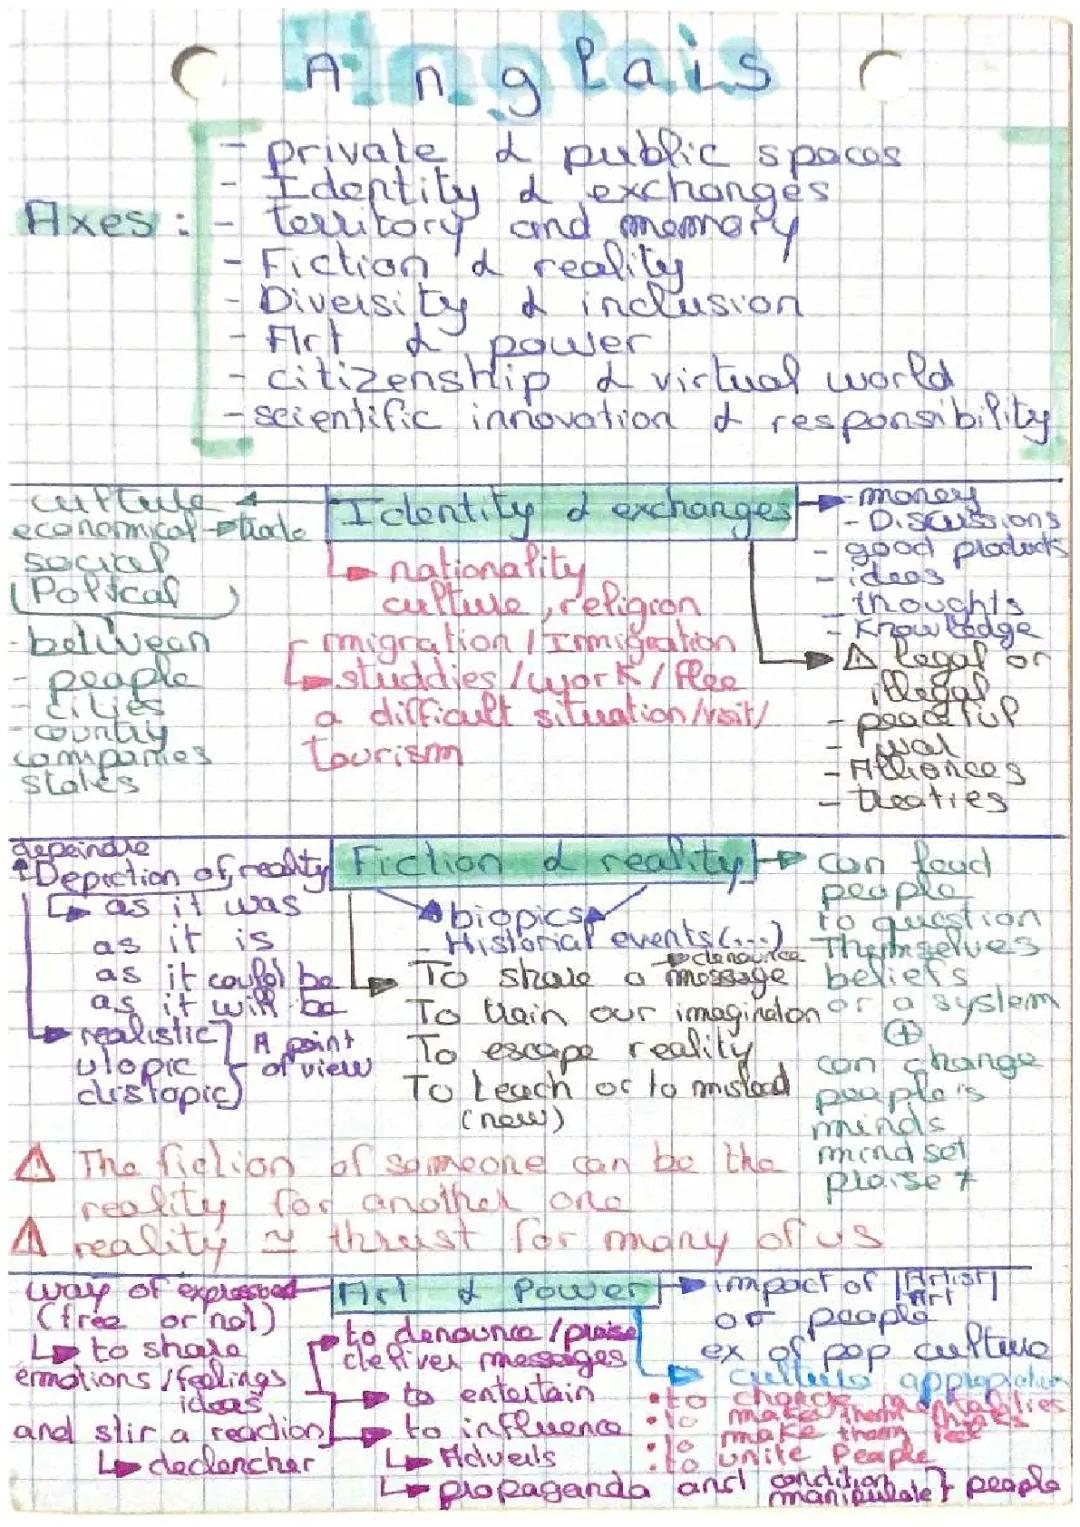 Anglais
Axes :
- private & public spaces
- Identity & exchanges
- territory and memory
- Fiction & reality
- Diversity & inclusion
- Art & power
- citizenship & virtual world
- scientific innovation & responsibility
Identity & exchanges
culture
economical → trade
social
(Poltcal)
- betwean
- people
- cities
- country
companies
states
nationality
culture, religion
migration / Immigration
studdies / work / flee
a difficult situation/visit/
tourism
- money
- Discussions
- good products
- ideas
- thoughts
- Knowledge
⚠ legal or
illegal
- peaceful
- war
- Alliances
- treaties
Fiction & reality
depeindre
Depiction of reality
as it was
as it is
as it could be
as it will be
realistic
utopic
distopic
A point
of view
biopics
- Historial events (...)
denounce
To share a message
To train our imaginaton
To escape reality
To teach or to mislead
(new)
can lead
people
to question
Themselves
beliefs
or a system
+
can change
people's
minds
mind set
praise ≠
⚠ The fiction of someone can be the
reality for another one
⚠ reality ≃ thrust for many of us
Art & Power
way of expressed
(free or not)
to share
emotions / feelings
ideas
and stir a reaction
declencher
to denounce / praise
deliver messages
to entertain
to influence
Adverts
propaganda and condition manipulate } people
impact of Artist
Art
of people
ex of pop culture
culture appropiation
• to change mentalities
• to make them
• to make them feel
• to unite People